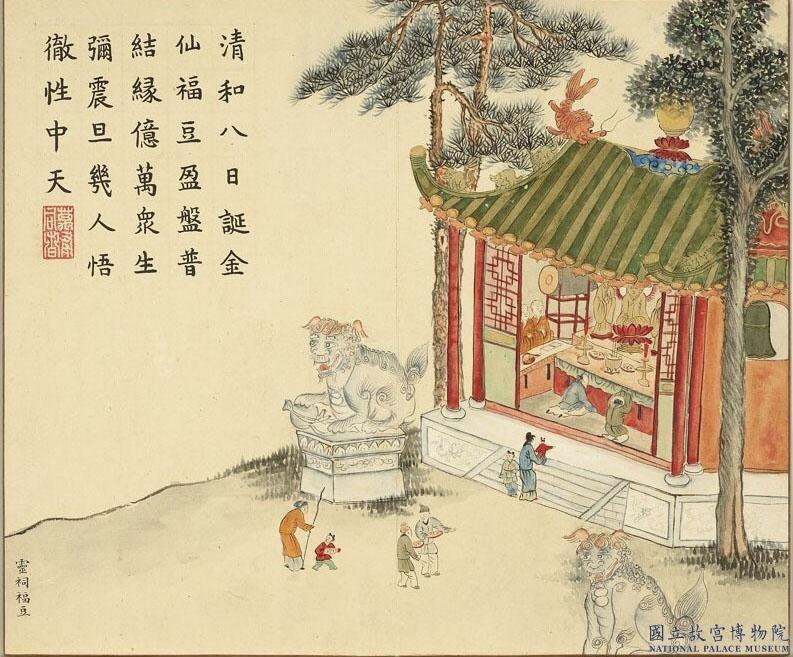 清和八日誕金
仙福豆盈盤普
結緣億萬眾生
彌震旦幾人悟
徹性中天
靈祠福豆
國立故宮博物院
NATIONAL PALACE MUSEUM